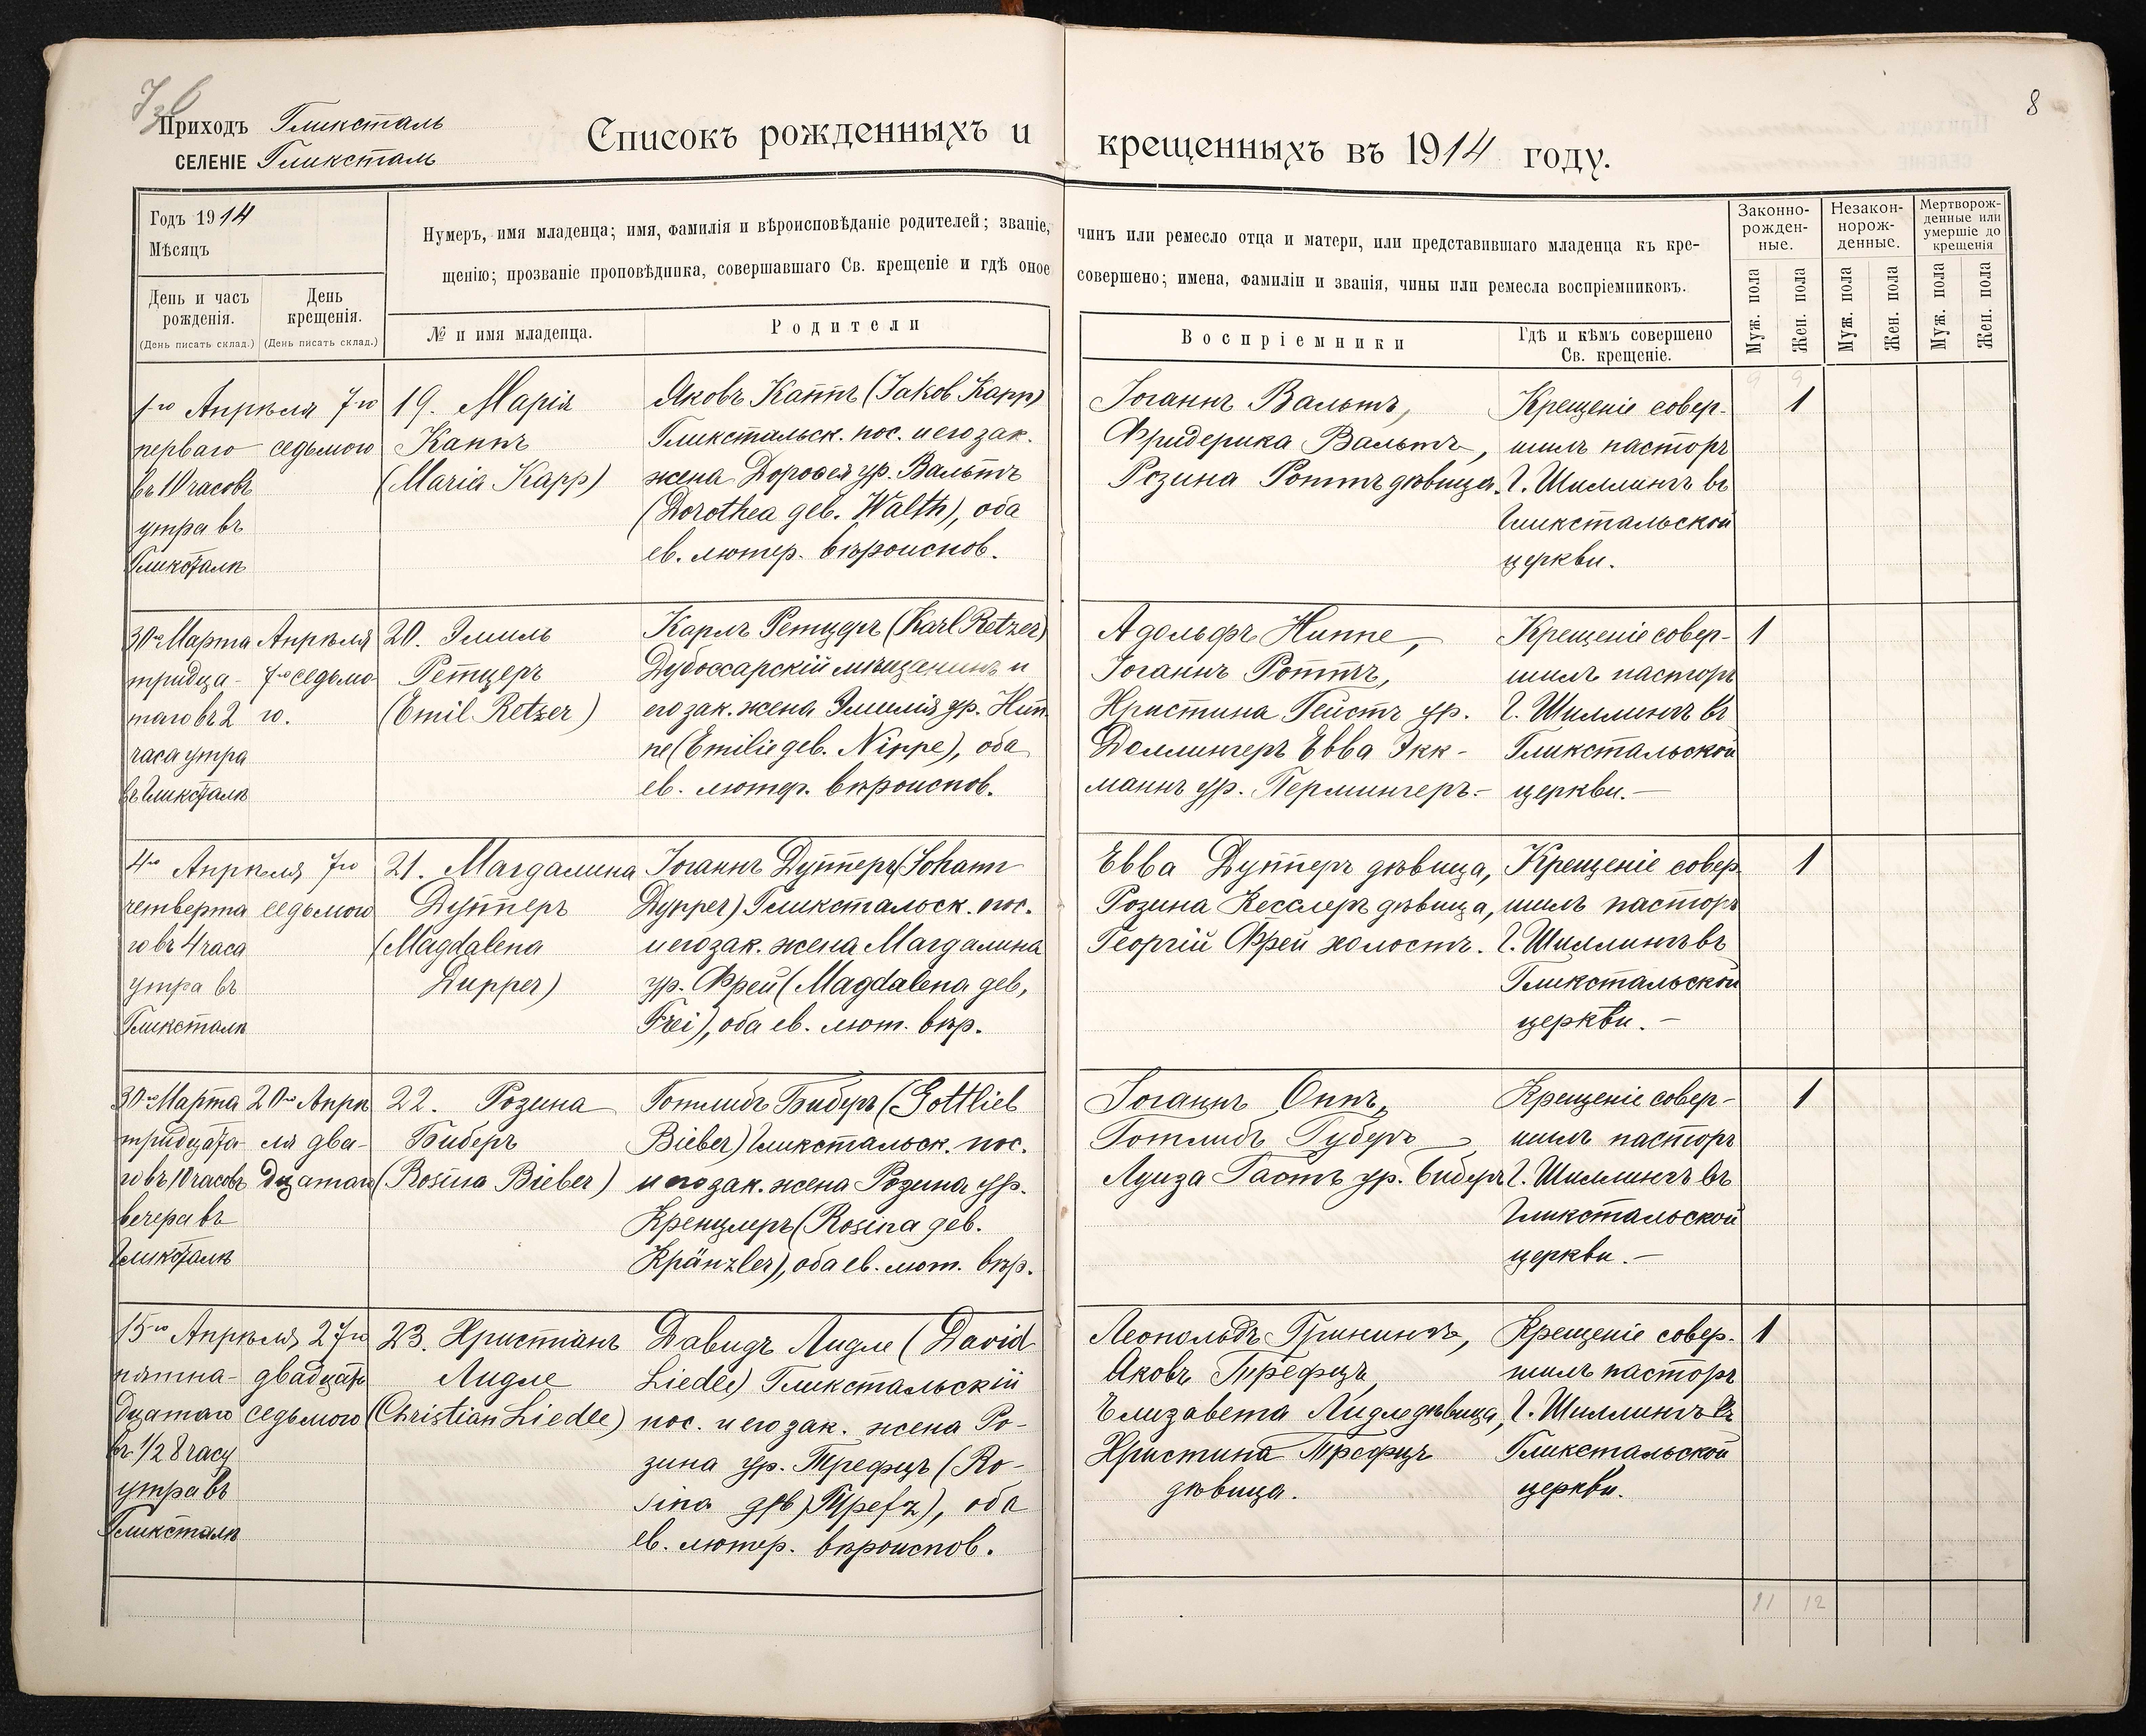 8
Приходъ Гликсталь
СЕЛЕНІЕ Гликсталь
Списокъ рожденныхъ и крещенныхъ въ 1914 году.
Годъ 1914
Мѣсяцъ
День и часъ рожденія.
(День писать склад.)
День крещенія.
(День писать склад.)
Нумеръ, имя младенца; имя, фамилія и вѣроисповѣданіе родителей; званіе, чинъ или ремесло отца и матери, или представившаго младенца къ кре-
щенію; прозваніе проповѣдника, совершавшаго Св. крещеніе и гдѣ оное совершено; имена, фамиліи и званія, чины или ремесла воспріемниковъ.
№ и имя младенца.
Родители
Воспріемники
Гдѣ и кѣмъ совершено
Св. крещеніе.
Законно-
рожден-
ные.
Незакон-
норож-
денные.
Мертворож-
денные или
умершіе до
крещенія
Муж. пола
Жен. пола
Муж. пола
Жен. пола
Муж. пола
Жен. пола
9 9
1го Апрѣля
перваго
въ 10 часовъ
утра въ
Гликсталѣ
7го
седьмого
19. Марія
Каппъ
(Maria Kapp)
Яковъ Каппъ (Jakob Kapp)
Гликстальск. пос. и его зак.
жена Доровея ур. Вальтъ
(Dorothea geb. Walth), оба
ев. лютер. вѣроиспов.
Іоганнъ Вальтъ,
Фридерика Вальтъ,
Розина Роттъ дѣвица.
Крещеніе совер-
шилъ пасторъ
Г. Шиллингъ въ
Гликстальской
церкви.
1
30го Марта
тридца-
таго въ 2
часа утра
въ Гликсталѣ
Апрѣля
7го седьмо-
го.
20. Эмиль
Ретцеръ
(Emil Retzer)
Карлъ Ретцеръ (Karl Retzer)
Дубоссарскій мѣщанинъ и
его зак. жена Эмилія ур. Нип-
пе (Emilie geb. Nippe), оба
ев. лютер. вѣроиспов.
Адольфъ Ниппе,
Іоганнъ Роттъ,
Христина Гейстъ ур.
Доллингеръ Евва Экк-
маннъ ур. Перминьеръ.-
Крещеніе совер-
шилъ пасторъ
Г. Шиллингъ въ
Гликстальской
церкви.—
1
4го Апрѣля
четверта
го въ 4 часа
утра въ
Гликсталѣ
7го
седьмого
21. Магдалина
Дупперъ
(Magdalena
Dupper)
Іоганнъ Дупперъ (Johann
Dupper) Гликстальск. пос.
и его зак. жена Магдалина
ур. Фрей (Magdalena geb.
Frei), оба ев. лют. вѣр.
Евва Дупперъ дѣвица,
Розина Кесслеръ дѣвица,
Георгій Фрей холостъ.
Крещеніе совер-
шилъ пасторъ
Г. Шиллингъ въ
Гликстальской
церкви.—
1
30го Марта
тридцата-
го въ 10 часовъ
вечера въ
Гликсталѣ
20го Апрѣ
ля два-
дцатаго
22. Розина
Биберъ
(Rosina Bieber)
Готлибъ Биберъ (Gottlieb
Bieber) Гликстальск. пос.
и его зак. жена Розина ур.
Кренцлеръ (Rosina geb.
Kränzler), оба ев. лют. вѣр.
Іоганнъ Оппъ,
Готлибъ Губеръ,
Луиза Гастъ ур. Биберъ
Крещеніе совер-
шилъ пасторъ
Г. Шиллингъ въ
Гликстальской
церкви.—
1
15го Апрѣля
пятна-
дцатаго
въ 1/2 8 часу
утра въ
Гликсталѣ
27го
двадцать
седьмого
23. Христіанъ
Лидле
(Christian Liedle)
Давидъ Лидле (David
Liedle) Гликстальскій
пос. и его зак. жена Ро-
зина ур. Трефцъ (Ro-
sina geb. Trefz), оба
ев. лютер. вѣроиспов.
Леопольдъ Гринингъ,
Яковъ Трефцъ,
Елизавета Лидле дѣвица,
Христина Трефцъ
дѣвица.
Крещеніе совер-
шилъ пасторъ
Г. Шиллингъ въ
Гликстальской
церкви.
1
11 12